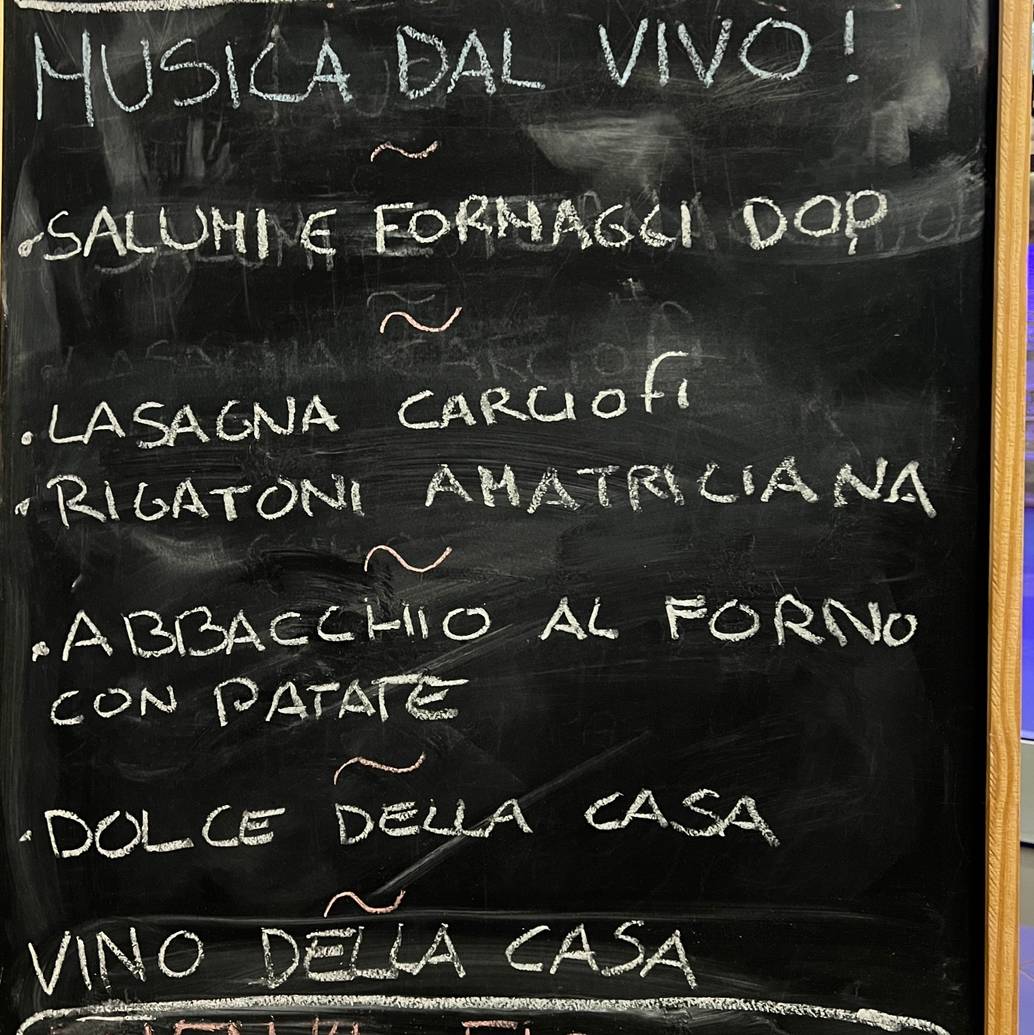 MUSICA DAL VIVO!
~
• SALUMI E FORMAGGI DOP
~
• LASAGNA CARCIOFI
• RIGATONI AMATRICIANA
~
• ABBACCHIO AL FORNO
CON PATATE
~
• DOLCE DELLA CASA
~
VINO DELLA CASA